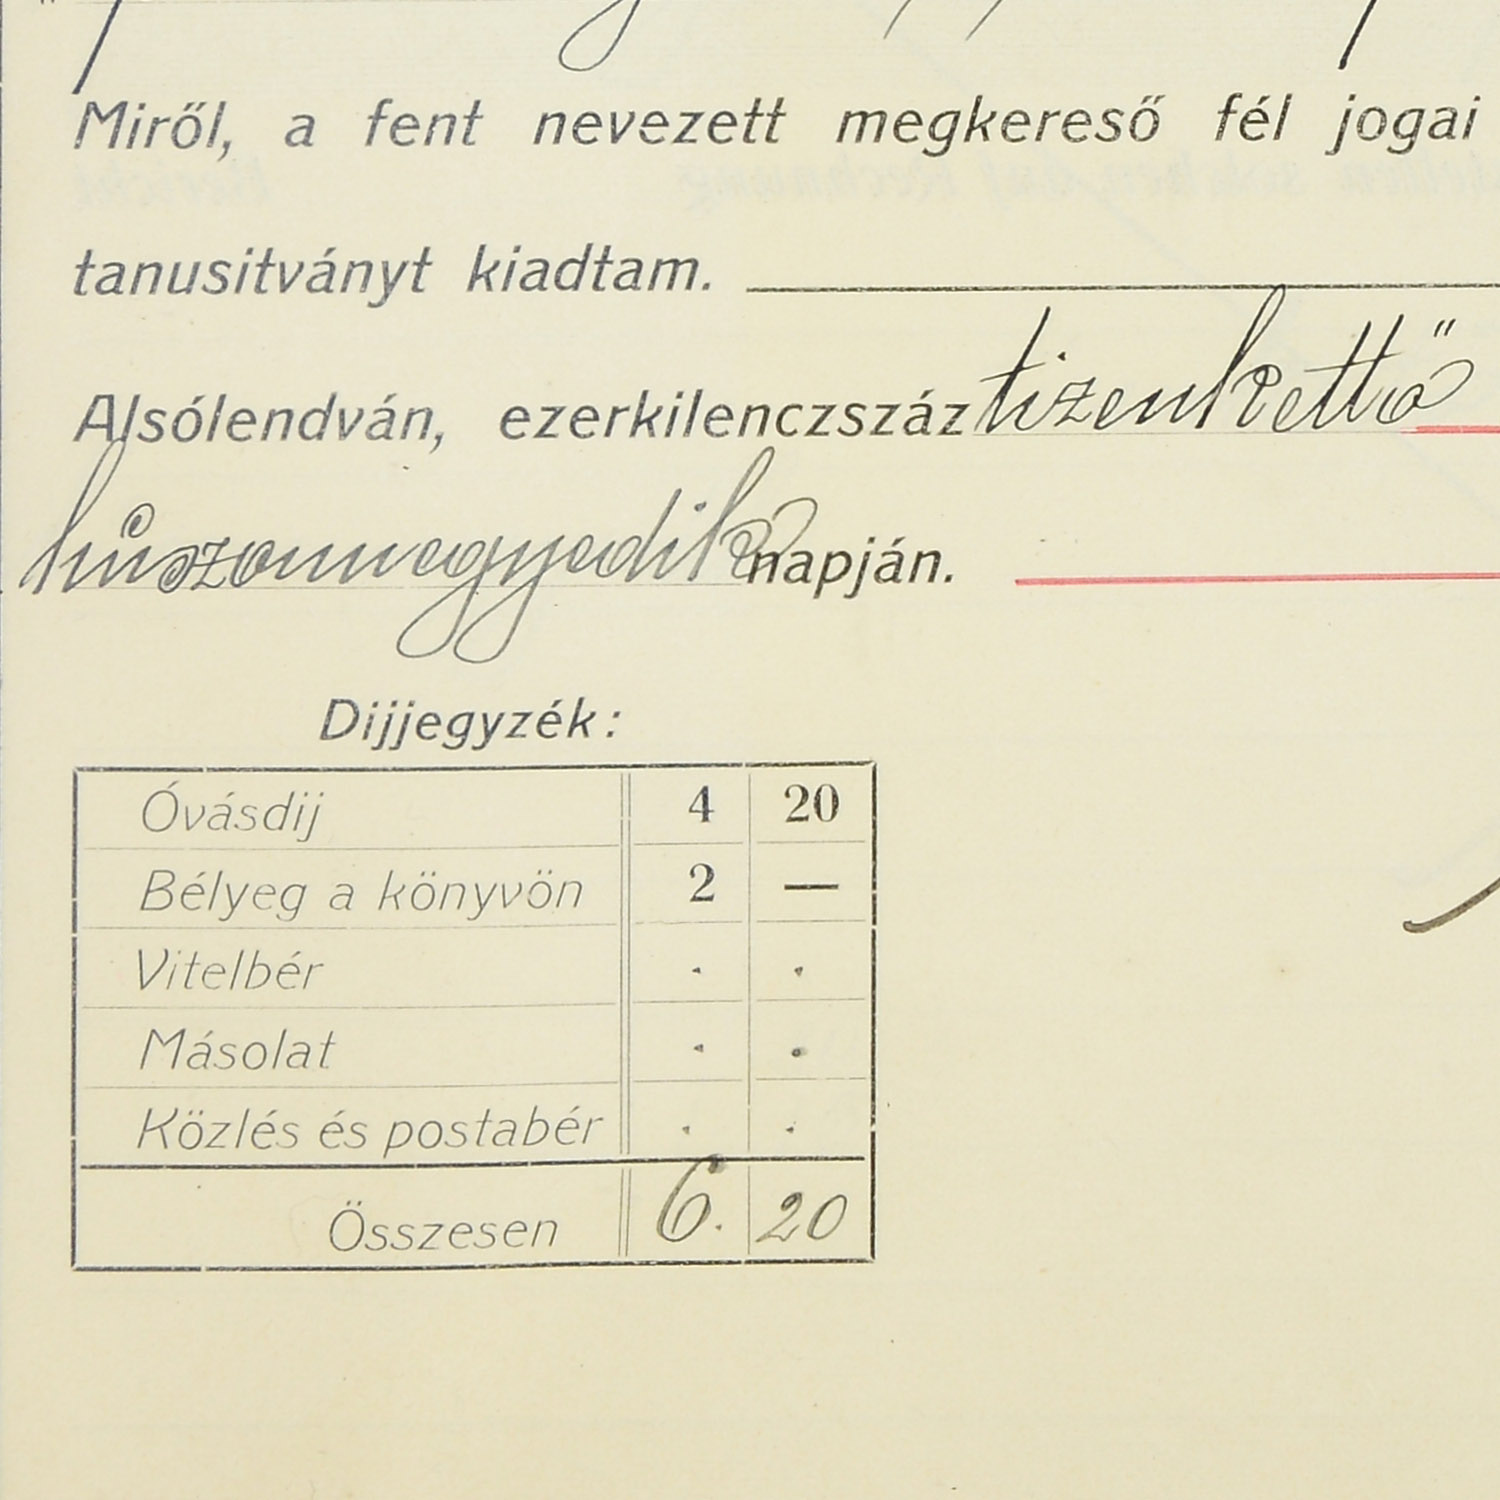 Miről, a fent nevezett megkereső fél jogai
tanusitványt kiadtam.
Alsólendván, ezerkilenczszáz tizenkettő
húszonnegyedik napján.
Dijjegyzék:
Óvásdij 4 20
Bélyeg a könyvön 2 —
Vitelbér . .
Másolat . .
Közlés és postabér . .
Összesen 6. 20